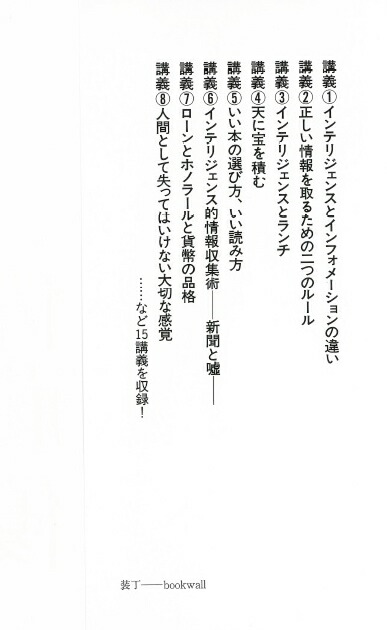 講義①インテリジェンスとインフォメーションの違い
講義②正しい情報を取るための二つのルール
講義③インテリジェンスとランチ
講義④天に宝を積む
講義⑤いい本の選び方、いい読み方
講義⑥インテリジェンス的情報収集術――新聞と嘘――
講義⑦ローンとホノラールと貨幣の品格
講義⑧人間として失ってはいけない大切な感覚
……など15講義を収録！
装丁――bookwall